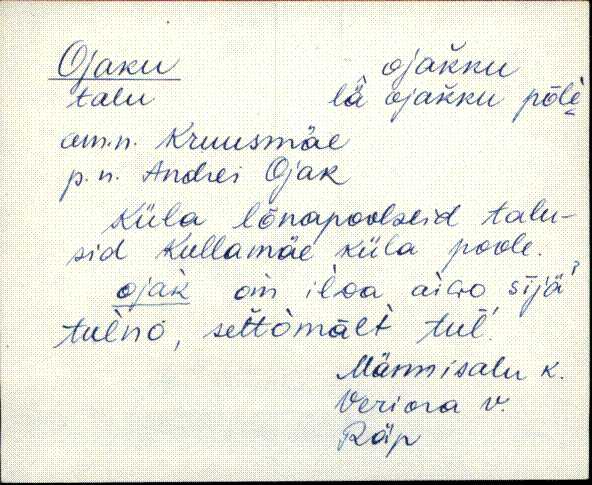 Ojaku ojakku
talu lä ojakku põlè
am.n. Kruusmäe
p.n. Andrei Ojak
Küla lõnapoolseid talu-
sid Kullamäe küla poole.
ojak om iloa aiwo sījä
tulno, settomält tul'.
Männisalu k.
Veriora v.
Räp